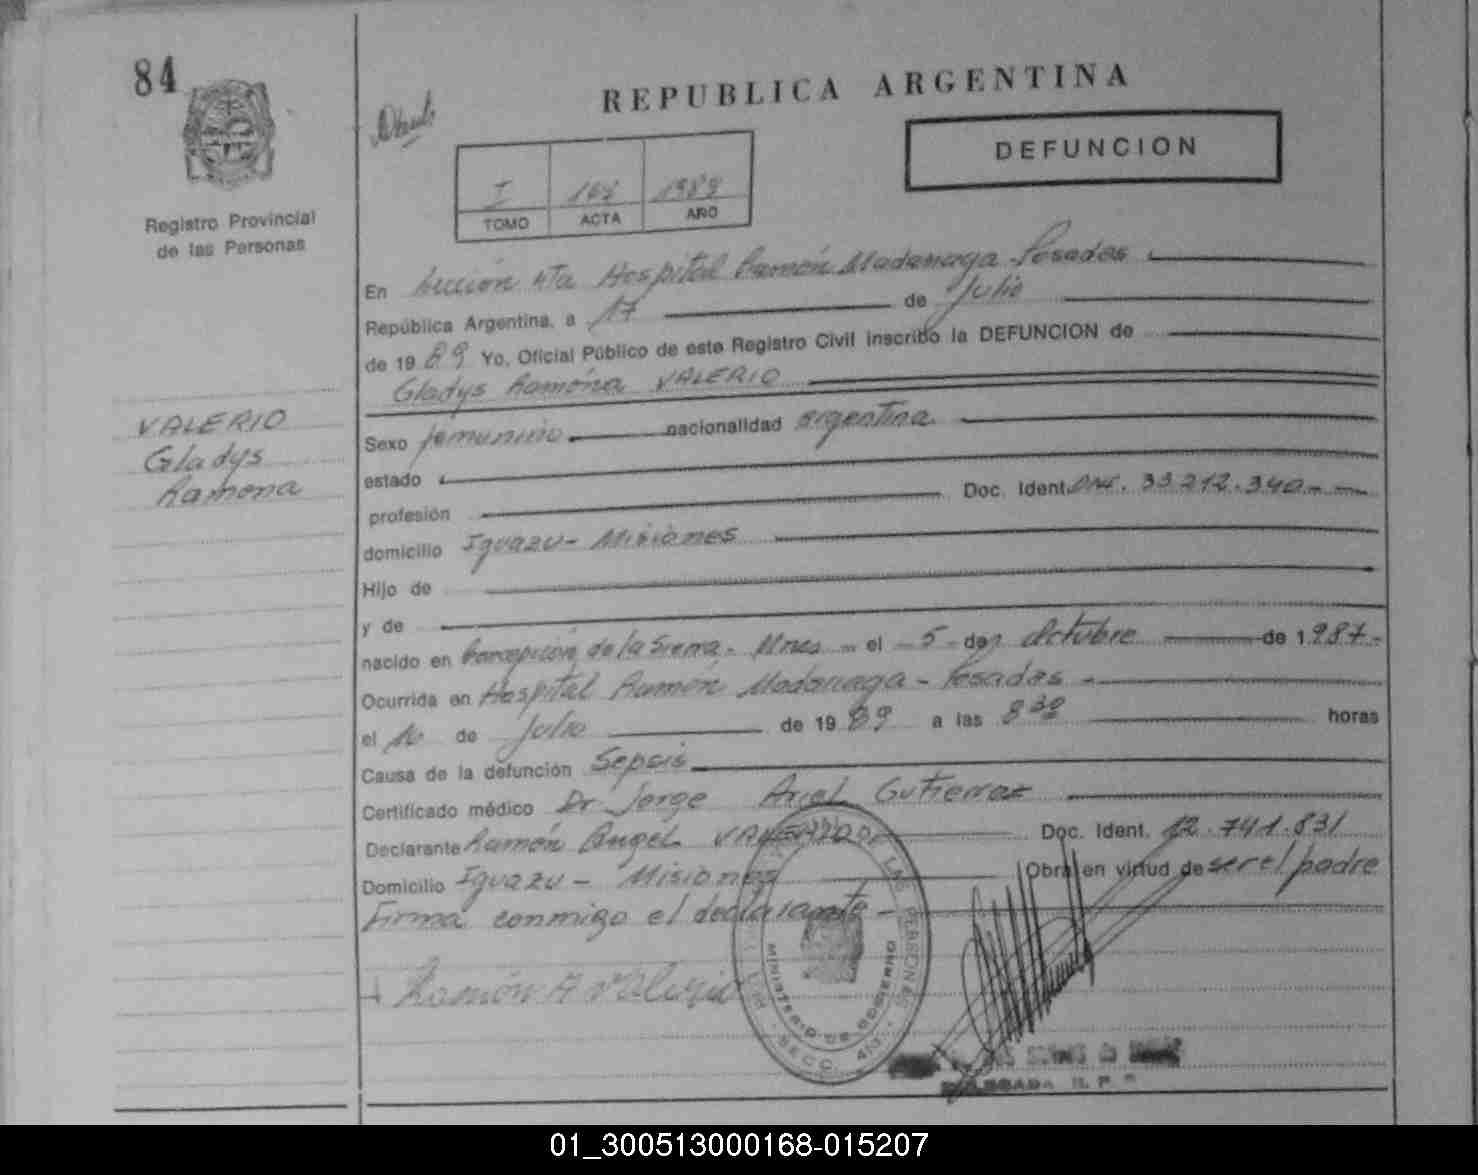 84
REPUBLICA ARGENTINA
DEFUNCION
I 1989
TOMO ACTA AÑO
Registro Provincial
de las Personas
En Sección 4ta Hospital Ramón Madariaga - Posadas
República Argentina, a 17 de Julio
de 1989 Yo, Oficial Público de este Registro Civil inscribo la DEFUNCION de
Gladys Ramona VALERIO
VALERIO
Gladys
Ramona
Sexo femenino nacionalidad argentina
estado
profesión Doc. Ident. DNI. 33.212.340 - -
domicilio Iguazu - Misiones
Hijo de
y de
nacido en Concepción de la Sierra - Mnes - el - 5 - de Octubre de 1.987.-
Ocurrida en Hospital Ramón Madariaga - Posadas -
el de Julio de 1989 a las 8 30 horas
Causa de la defunción Sepsis
Certificado médico Dr Jorge Ariel Gutierrez
Declarante Ramón Angel VALERIO Doc. Ident. 12.741.831
Domicilio Iguazu - Misiones Obra en virtud de ser el padre
Firma conmigo el declarante -
Ramón A Valerio
MINISTERIO DE GOBIERNO
LAS PERSONAS
SECC. 4ta.
01_300513000168-015207